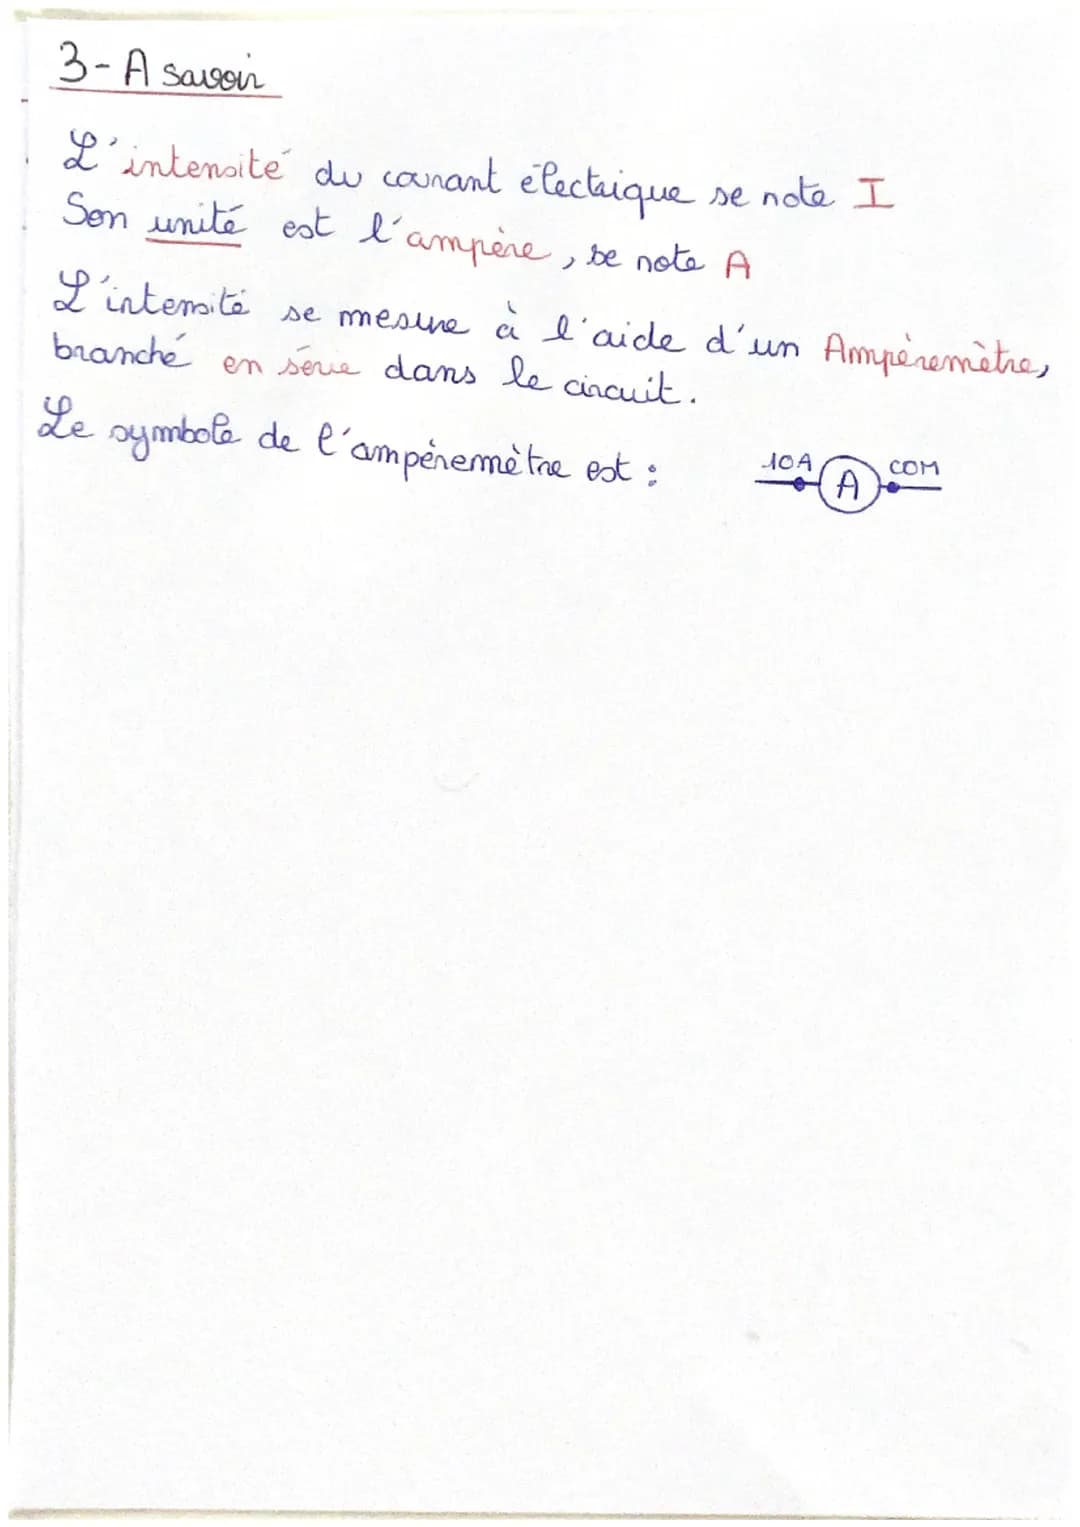 3- A savoir
L'intensité du courant électrique se note I
Son unité est l'ampère, se note A
L'intensité se mesure à l'aide d'un Ampèremètre,
branché en série dans le circuit.
Le symbole de l'ampèremètre est :
10A A COM